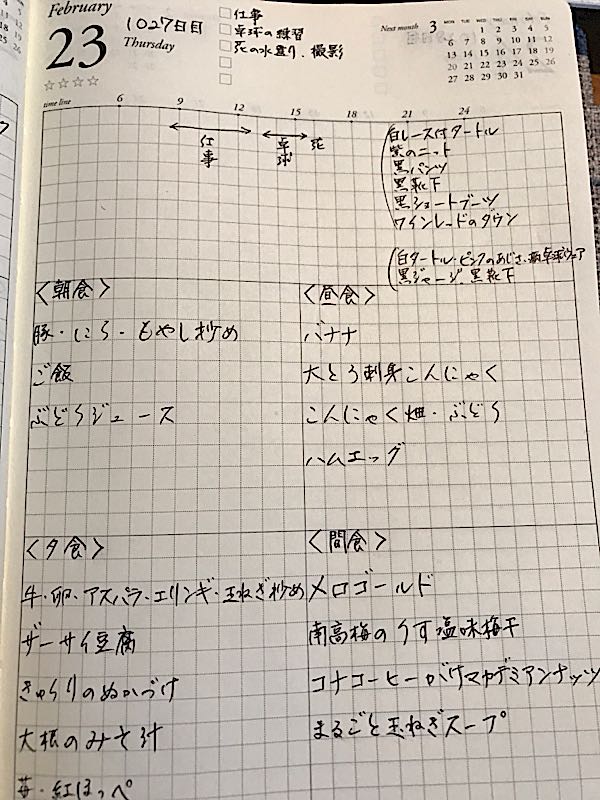 February
23
Thursday
1027日目
仕事
卓球の練習
花の水登り、撮影
Next month 3
MON TUE WED THU FRI SAT SUN
1 2 3 4 5
6 7 8 9 10 11 12
13 14 15 16 17 18 19
20 21 22 23 24 25 26
27 28 29 30 31
time line 6 9 12 15 18 21 24
仕事
卓球
花
白レース付タートル
紫のニット
黒パンツ
黒靴下
黒ショートブーツ
ワインレッドのダウン
白タートル・ピンクのあじさい柄卓球ウェア
黒ジャージ、黒靴下
<朝食>
豚・にら・もやし炒め
ご飯
ぶどうジュース
<昼食>
バナナ
大とろ刺身こんにゃく
こんにゃく畑・ぶどう
ハムエッグ
<夕食>
牛・卵・アスパラ・エリンギ・玉ねぎ炒め
ザーサイ豆腐
きゅうりのぬかづけ
大根のみそ汁
苺・紅ほっぺ
<間食>
メロゴールド
南高梅のうす塩味梅干
コナコーヒーがけマカデミアンナッツ
まるごと玉ねぎスープ